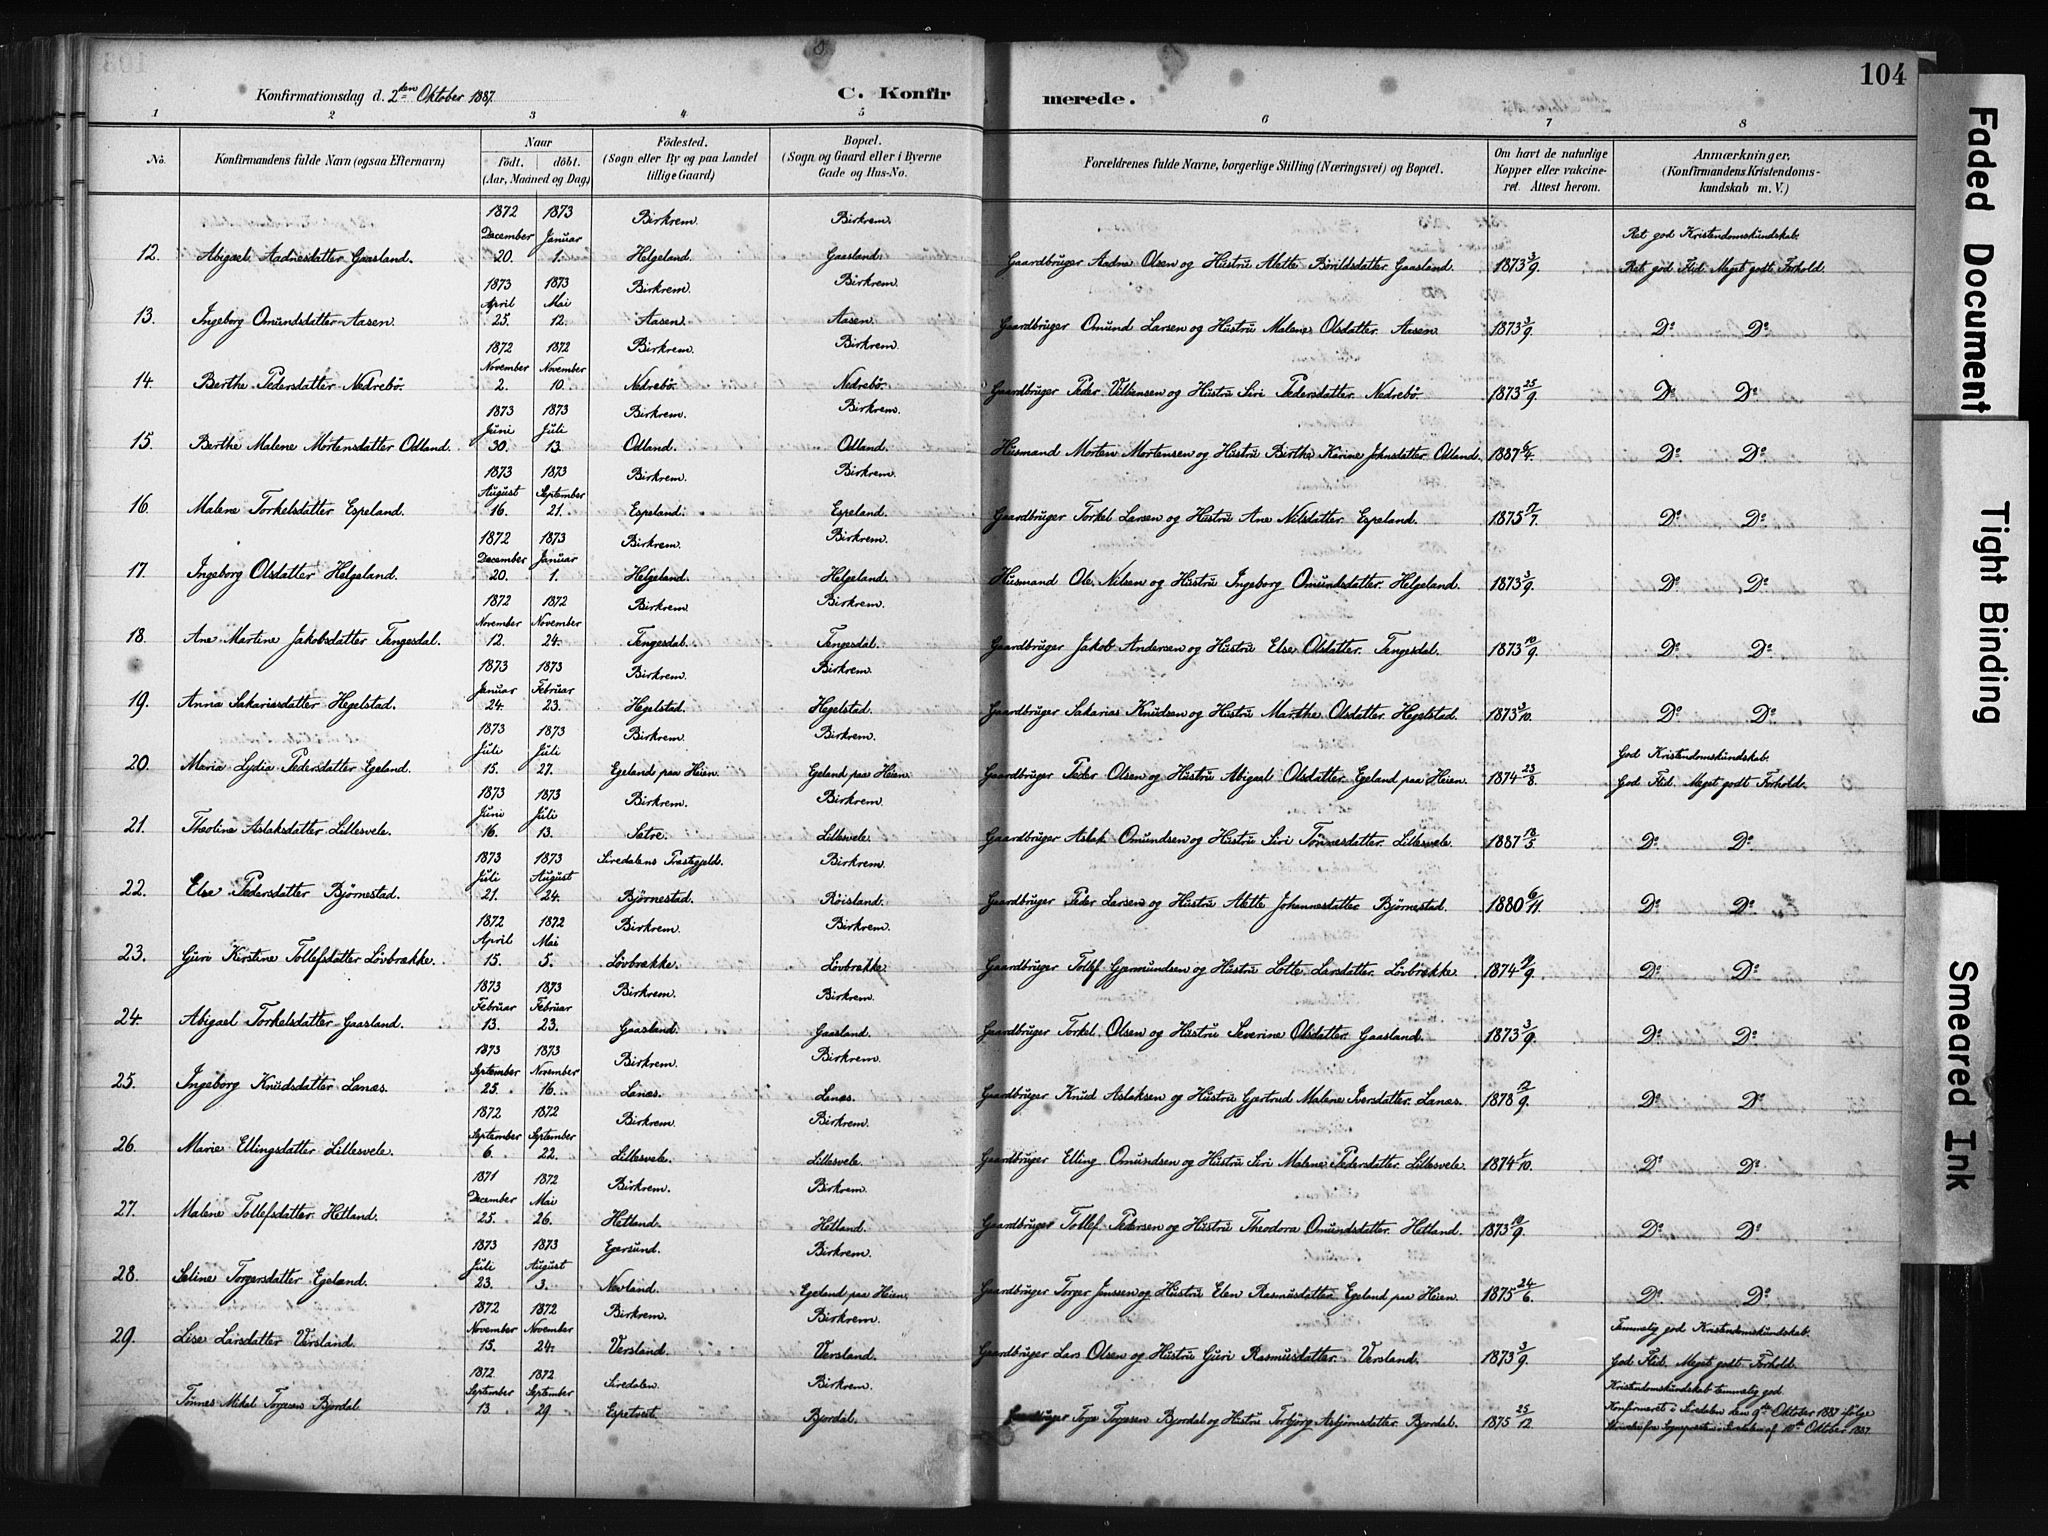 104
Konfirmationsdag d. 2den Oktober 1887. C. Konfirmerede.
1 2 3 4 5 6 7 8
No. Konfirmandens fulde Navn (ogsaa Efternavn) Naar født. døbt. (Aar, Maaned og Dag) Födested. (Sogn eller By og paa Landet tillige Gaard) Bopæl. (Sogn og Gaard eller i Byerne Gade og Hus-No. Forældrenes fulde Navne, borgerlige Stilling (Næringsvei) og Bopæl. Om havt de naturlige Kopper eller vakcineret. Attest herom. Anmærkninger, (Konfirmandens Kristendomskundskab m. V.)
12. Abigael Aadnesdatter Gaasland. 1872 December 20. 1873 Januar 1. Birkrem. Helgeland. Birkrem. Gaasland. Gaardbruger Aadne Olsen og Hustru Alette Boreldsdatter Gaasland. 1873 3/9. Ret god Kristendomskundskab. Ret god Flid. Meget godt Forhold.
13. Ingeborg Omundsdatter Aasen. 1873 April 25. 1873 Mai 12. Birkrem. Aasen. Birkrem. Aasen. Gaardbruger Omund Larsen og Hustru Malene Olsdatter. Aasen. 1873 3/9. Do. Do.
14. Berthe Pedersdatter Nedrebø. 1872 November 2. 1872 November 10. Birkrem. Nedrebø. Birkrem. Nedrebø. Gaardbruger Peder Villumsen og Hustru Siri Pedersdatter. Nedrebø. 1873 25/9. Do. Do.
15. Berthe Malene Mortensdatter Odland. 1873 Juni 30. 1873 Juli 13. Birkrem. Odland. Birkrem. Odland. Husmand Morten Mortensen og Hustru Birthe Karine Johnsdatter. Odland. 1887 6/4. Do. Do.
16. Malene Torkelsdatter Espeland. 1873 August 16. 1873 September 21. Birkrem. Espeland. Birkrem. Espeland. Gaardbruger Torkel Larsen og Hustru Ane Nilsdatter. Espeland. 1875 17/7. Do. Do.
17. Ingeborg Olsdatter Helgeland. 1872 December 20. 1873 Januar 1. Birkrem. Helgeland. Birkrem. Helgeland. Husmand Ole Nilsen og Hustru Ingeborg Omundsdatter. Helgeland. 1873 3/9. Do. Do.
18. Ane Martine Jakobsdatter Tengesdal. 1872 November 12. 1872 November 24. Birkrem. Tengesdal. Birkrem. Tengesdal. Gaardbruger Jakob Andersen og Hustru Else Olsdatter. Tengesdal. 1873 10/9. Do. Do.
19. Anna Sakariasdatter Hegelstad. 1873 Januar 24. 1873 Februar 23. Birkrem. Hegelstad. Birkrem. Hegelstad. Gaardbruger Sakarias Knudsen og Hustru Marthe Olsdatter. Hegelstad. 1873 3/10. Do. Do.
20. Maria Lydia Pedersdatter Egeland. 1873 Juli 15. 1873 Juli 27. Birkrem. Egeland paa Heien. Birkrem. Egeland paa Heien. Gaardbruger Peder Olsen og Hustru Abigael Olsdatter. Egeland paa Heien. 1874 23/8. God Kristendomskundskab. God Flid. Meget godt Forhold.
21. Theoline Aslaksdatter Lillesvele. 1873 Juni 16. 1873 Juli 13. Birkrem. Sætre. Birkrem. Lillesvele. Gaardbruger Aslak Omundsen og Hustru Siri Tønnesdatter. Lillesvele. 1887 18/5. Do. Do.
22. Else Pedersdatter Bjørnestad. 1873 Juli 21. 1873 August 24. Siredalens Prestgjeld. Bjørnestad. Birkrem. Røisland. Gaardbruger Peder Larsen og Hustru Alette Johannesdatter Bjørnestad. 1880 6/11. Do. Do.
23. Guri Kirstine Tollefsdatter Løvbrække. 1872 April 15. 1872 Mai 5. Birkrem. Løvbrække. Birkrem. Løvbrække. Gaardbruger Tollef Gjermundsen og Hustru Lotte Larsdatter. Løvbrække. 1874 19/9. Do. Do.
24. Abigael Torkelsdatter Gaasland. 1873 Februar 13. 1873 Februar 23. Birkrem. Gaasland. Birkrem. Gaasland. Gaardbruger Torkel Olsen og Hustru Severine Olsdatter. Gaasland. 1873 3/9. Do. Do.
25. Ingeborg Knudsdatter Lanæs. 1873 September 25. 1873 November 16. Birkrem. Lanæs. Birkrem. Lanæs. Gaardbruger Knud Aslaksen og Hustru Gjertrud Malene Iversdatter. Lanæs. 1878 17/9. Do. Do.
26. Marie Ellingsdatter Lillesvele. 1872 September 6. 1872 September 22. Birkrem. Lillesvele. Birkrem. Lillesvele. Gaardbruger Elling Omundsen og Hustru Siri Malene Pedersdatter. Lillesvele. 1874 1/10. Do. Do.
27. Malene Tollefsdatter Hetland. 1871 December 25. 1872 Mai 26. Birkrem. Hetland. Birkrem. Hetland. Gaardbruger Tollef Pedersen og Hustru Theodora Omundsdatter. Hetland. 1873 10/9. Do. Do.
28. Seline Torgersdatter Egeland. 1873 Juli 23. 1873 August 3. Egersund. Nevland. Birkrem. Egeland paa Heien. Gaardbruger Torger Jonssen og Hustru Elen Rasmusdatter. Egeland paa Heien. 1875 24/6. Do. Do.
29. Lise Larsdatter Versland. 1872 November 15. 1872 November 24. Birkrem. Versland. Birkrem. Versland. Gaardbruger Lars Olsen og Hustru Guri Rasmusdatter. Versland. 1873 3/9. Temmelig god Kristendomskundskab. God Flid. Meget godt Forhold.
Tønnes Mikal Torgesen Bjordal. 1872 September 13. 1872 September 29. Siredalen. Espetveit. Birkrem. Bjordal. Gaardbruger Torger Torgesen Bjordal og Hustru Torbjørg Asbjørnsdatter. Bjordal. 1875 25/12. Kristendomskundskab temmelig god. Konfirmeret i Siredalen den 9de Oktober 1887 ifølge Skrivelse fra Sognepresten i Siredalen af 10de Oktober 1887.
Faded Document
Tight Binding
Smeared Ink